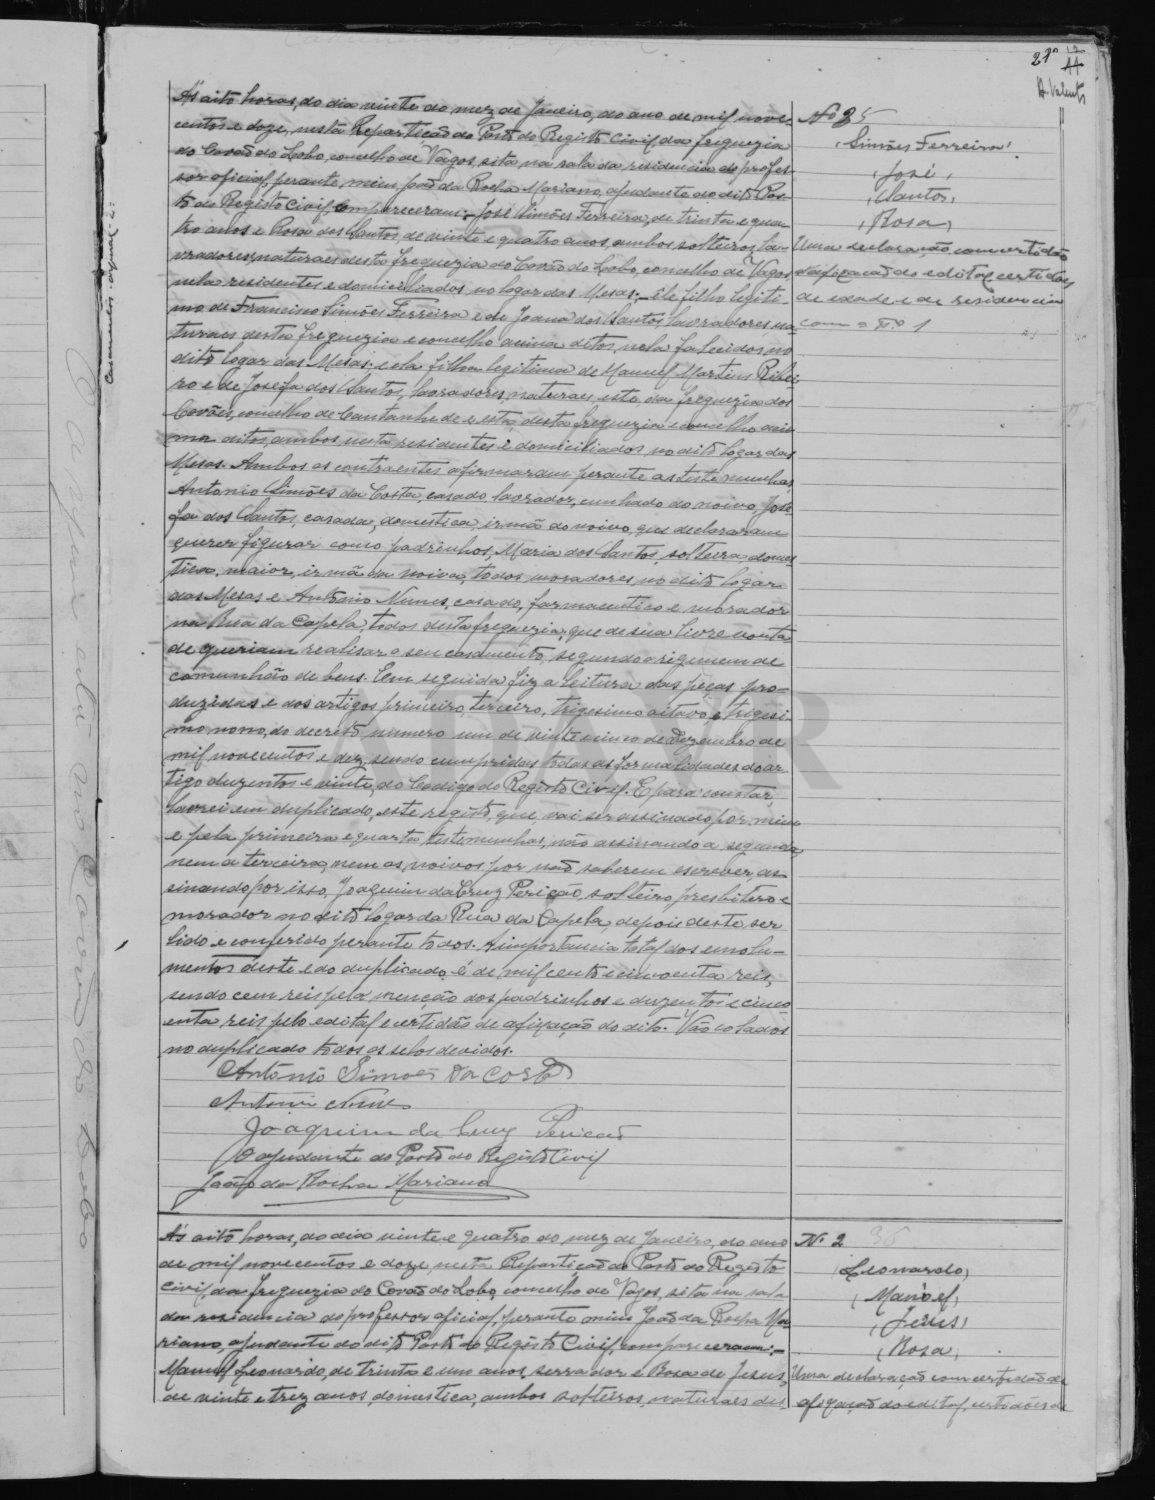 21
H. Valente
Ás oito horas, do dia vinte do mez de Janeiro, do ano de mil nove-
centos e doze, nesta Repartição do Posto do Registo Civil da freguezia
do Covão do Lobo, concelho de Vagos, sita na sala da residencia do profes-
sor oficial, perante mim, João da Rocha Mariano, ajudante do dito Pos-
to de Registo Civil, compareceram:- José Simões Ferreira, de trinta e qua-
tro anos e Rosa dos Santos, de vinte e quatro anos, ambos solteiros, la-
vradores, naturaes desta freguezia do Covão do Lobo, concelho de Vagos,
nela residentes e domiciliados no logar das Mesas:- êle filho legiti-
mo de Francisco Simões Ferreira e de Joana dos Santos, lavradores, na-
turaes desta freguezia e concelho acima ditos, nela falecidos no
dito logar das Mesas: e ela filha legitima de Manuel Martins Ribei-
ro e de Josefa dos Santos, lavradores, naturaes, este da freguezia dos
Covões, concelho de Cantanhede e esta, desta freguezia e concelho aci-
ma ditos, ambos nesta residentes e domiciliados no dito logar das
Mesas. Ambos os contraentes afirmaram perante as testemunhas,
Antonio Simões da Costa, casado, lavrador, cunhado do noivo, Jose-
fa dos Santos, casada, domestica, irmã do noivo, que declararam
querer figurar como padrinhos, Maria dos Santos, solteira, domes-
tica, maior, irmã da noiva, todos moradores no dito logar
das Mesas e Antonio Nunes, casado, farmaceutico e morador
na Rua da Capela, todos desta freguezia, que de sua livre vonta
de queriam realisar o seu casamento, segundo o rigimem de
comunhão de bens. Em seguida fiz a leitura das peças pro-
duzidas e dos artigos primeiro, terceiro, trigesimo oitavo e trigesi-
mo nono, do decreto numero um de vinte e cinco de Dezembro de
mil novecentos e dez, sendo cumpridas todas as formalidades do ar-
tigo duzentos e vinte, do Codigo do Registo Civil. E para constar,
lavrei em duplicado, este registo, que vai ser assinado por mim
e pela primeira e quarta testemunhas, não assinando a segunda
nem a terceira, nem os noivos por não saberem escrever, as-
sinando por isso, Joaquim da Cruz Pericão, solteiro, presbitero e
morador no dito logar da Rua da Capela, depois deste ser
lido e conferido perante todos. A importancia total dos emolu-
mentos deste e do duplicado é de mil cento e cincoenta reis,
sendo cem reis pela menção dos padrinhos e duzentos e cinco
enta reis pelo edital e certidão de afixação do dito. Vão colados
no duplicado todos os selos devidos.
António Simões da Costa
Antonio Nunes
Joaquim da Cruz Pericão
O ajudante do Posto do Registo Civil
João da Rocha Mariano
Simões Ferreira
José
Santos
Rosa
Uma declaração com certidão
d'afixação do edital, certidões
de edade e de residencia
com o N.º 1
Ás oito horas, do dia vinte e quatro do mez de Janeiro, do ano
de mil novecentos e doze, nesta Repartição do Posto do Registo
Civil da freguezia do Covão do Lobo, concelho de Vagos, sita na sala
da residencia do professor oficial, perante mim João da Rocha Ma-
riano, ajudante do dito Posto do Registo Civil, compareceram:-
Manuel Leonardo, de trinta e um anos, serrador e Rosa de Jesus,
de vinte e trez anos, domestica, ambos solteiros, naturaes des-
N.º 2
36
Leonardo
Manoel
Jesus
Rosa
Uma declaração com certidão de
afixação do edital, certidões de
ADAVR